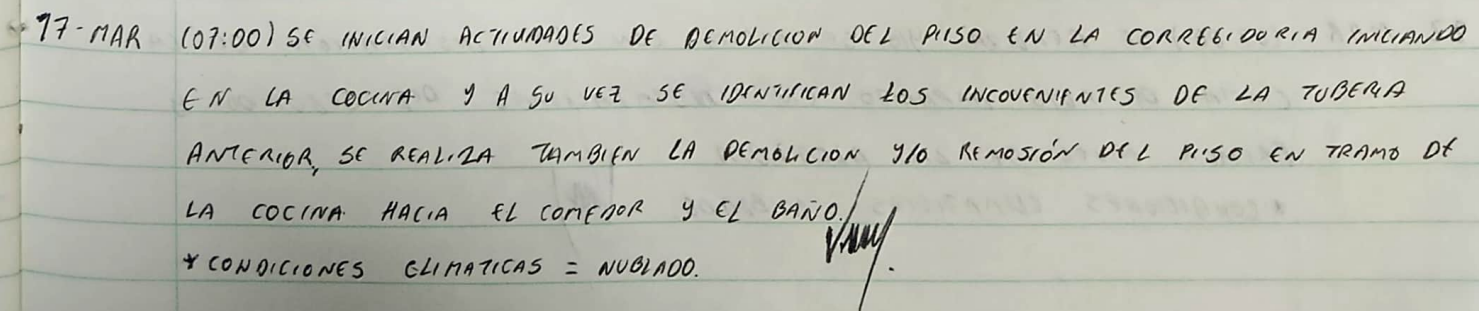 17-MAR (07:00) SE INICIAN ACTIVIDADES DE DEMOLICION DEL PISO EN LA CORREGIDORIA INICIANDO
EN LA COCINA Y A SU VEZ SE IDENTIFICAN LOS INCOVENIENTES DE LA TUBERIA
ANTERIOR, SE REALIZA TAMBIEN LA DEMOLICION Y/O REMOSIÓN DEL PISO EN TRAMO DE
LA COCINA HACIA EL COMEDOR Y EL BAÑO.
* CONDICIONES CLIMATICAS = NUBLADO.